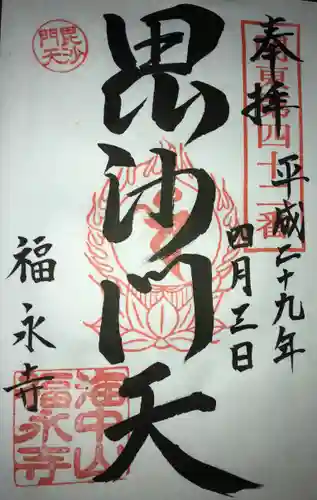 奉拝
平成二十九年
四月三日
関東第四十二番
毘沙門天
毘沙
門天
福永寺
海中山
福永寺